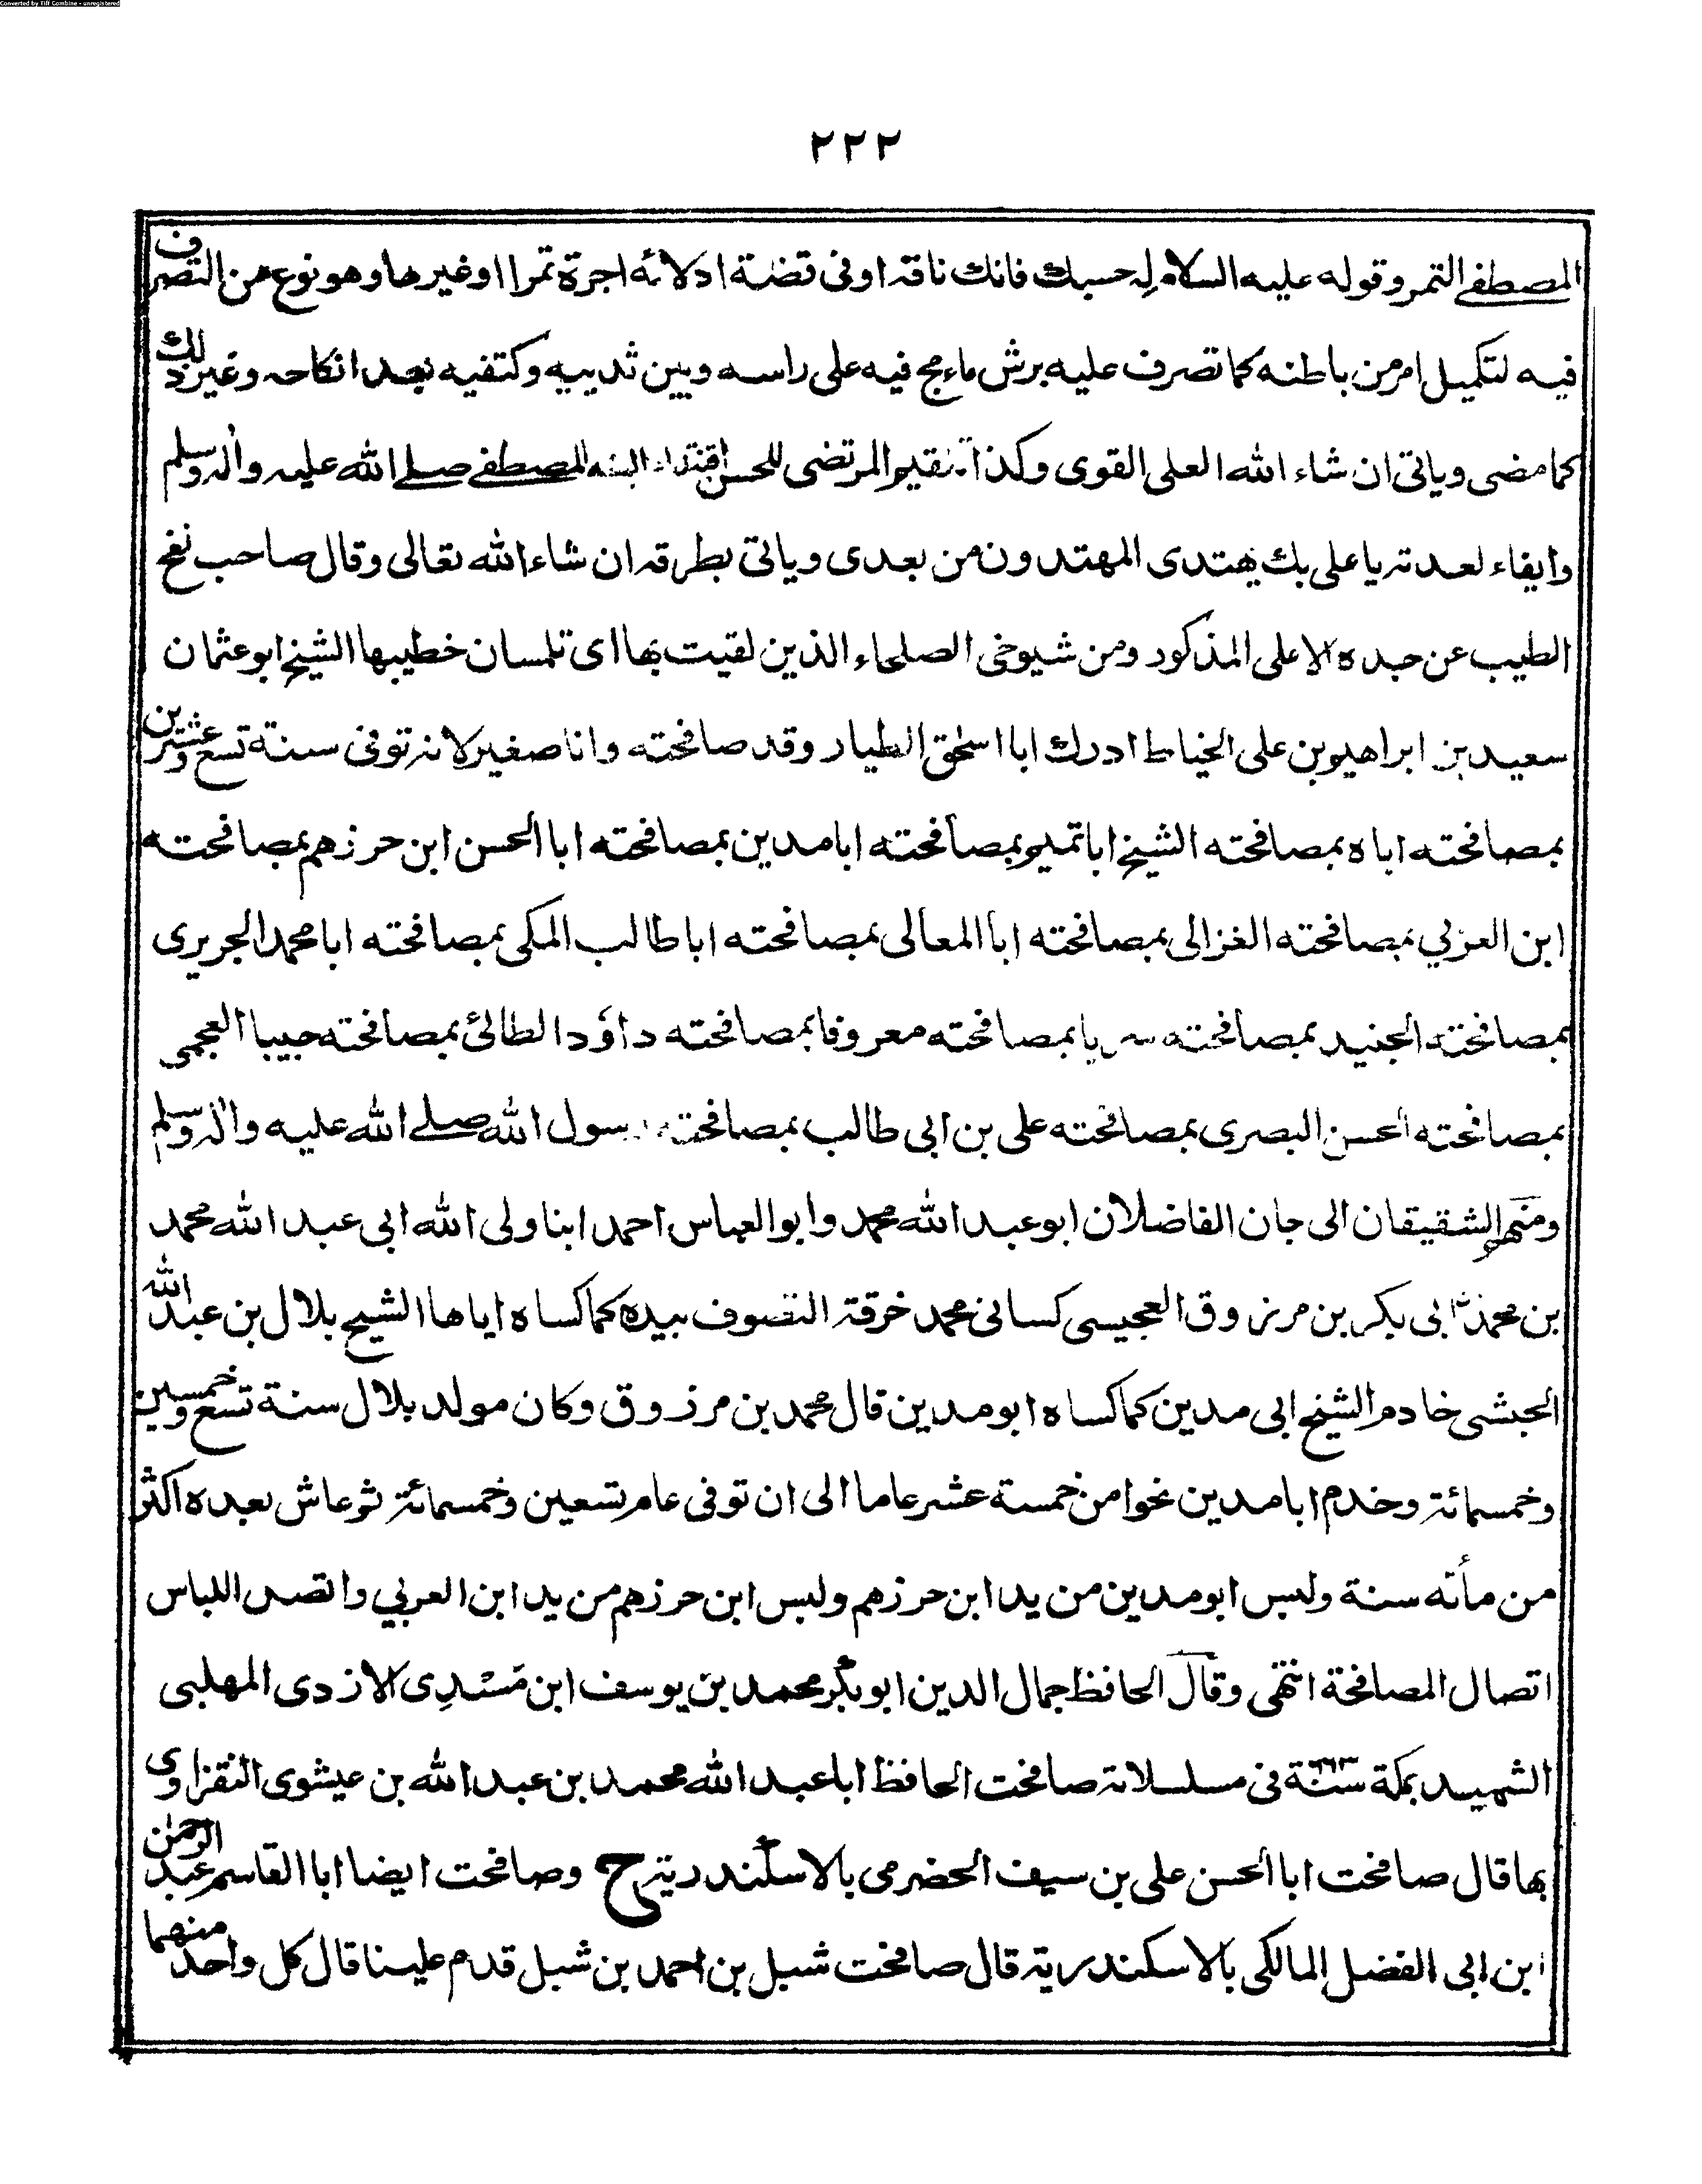 Converted by Tiff Combine - unregistered
٢٢٢
المصطفى التمر وقوله عليه السلام له حسبك فانك ناقه اوفى قضية ادلائه اجرة تمرا اوغيرها وهو نوع من التصرف
فيه لتكميل امر من باطنه كما تصرف عليه برش ماء مج فيه على راسه وبين ثدييه وكتفيه بعد انكاحه وغير ذلك
كما مضى وياتى ان شاء الله العلى القوى وكذا تلقيم المرتضى للحسن اقتداء المصطفى صلى الله عليه واله وسلم
وايفاء لعدته يا على بك يهتدى المهتدون من بعدى وياتى بطرقه ان شاء الله تعالى وقال صاحب نفح
الطيب عن جده الاعلى المذكور ومن شيوخى الصلحاء الذين لقيت بها اى تلمسان خطيبها الشيخ ابو عثمان
سعيد بن ابراهيم بن على الخياط ادرك ابا اسحٰق الطيار وقد صافحته وانا صغير لانه توفى سنة تسع وعشرين
بمصافحته اباه بمصافحته الشيخ ابا تميم بمصافحته ابا مدين بمصافحته ابا الحسن ابن حرزهم بمصافحته
ابن العربي بمصافحته الغزالى بمصافحته ابا المعالى بمصافحته ابا طالب المكى بمصافحته ابا محمد الجريرى
بمصافحته الجنيد بمصافحته سريا بمصافحته معروفا بمصافحته داؤد الطائى بمصافحته حبيبا العجمى
بمصافحته الحسن البصرى بمصافحته على بن ابى طالب بمصافحته رسول الله صلى الله عليه واله وسلم
ومنهم الشقيقان الى جان الفاضلان ابو عبد الله محمد وابو العباس احمد ابنا ولى الله ابى عبد الله محمد
بن محمد بن ابى بكر بن مرزوق العجيسى كسانى محمد خرقة التصوف بيده كما كساه اياها الشيخ بلال بن عبد الله
الحبشى خادم الشيخ ابى مدين كما كساه ابو مدين قال محمد بن مرزوق وكان مولد بلال سنة تسع وخمسين
وخمسمائة وخدم ابا مدين نحوا من خمسة عشر عاما الى ان توفى عام تسعين وخمسمائة ثم عاش بعده اكثر
من مأته سنة ولبس ابو مدين من يد ابن حرزهم ولبس ابن حرزهم من يد ابن العربي واتصل اللباس
اتصال المصافحة انتهى وقال الحافظ جمال الدين ابو بكر محمد بن يوسف ابن مَسْدِى الازدى المهلبى
الشهيد بمكة سنة ٦٦٣ فى مسلسلاته صافحت الحافظ ابا عبد الله محمد بن عبد الله بن عيشوى النفزاوى
بها قال صافحت ابا الحسن على بن سيف الحضرمى بالاسكندرية ح وصافحت ايضا ابا القاسم عبد الرحمٰن
ابن ابى الفضل المالكى بالاسكندرية قال صافحت شبل بن احمد بن شبل قدم علينا قال كل واحد منهما